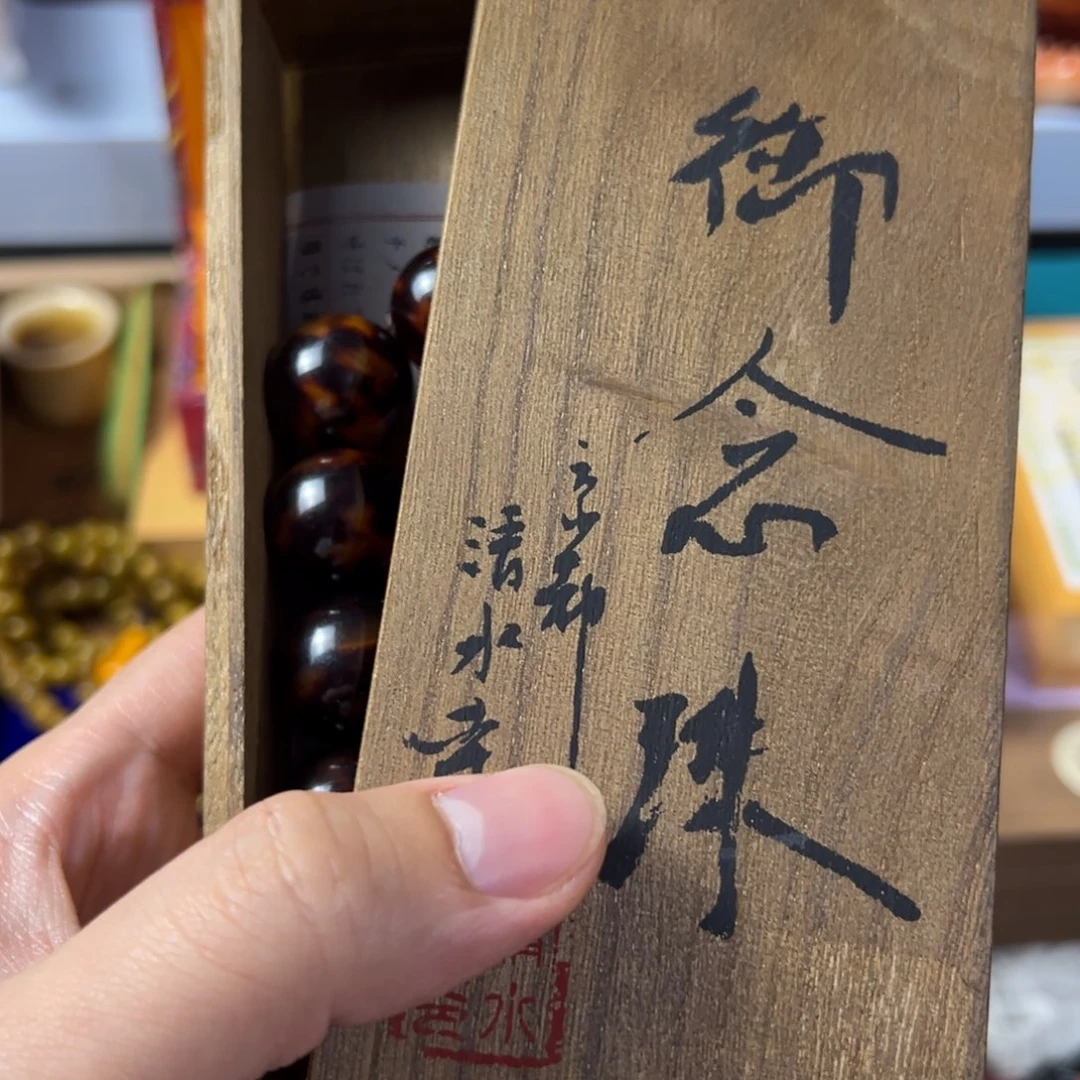 御念珠
京都
清水寺